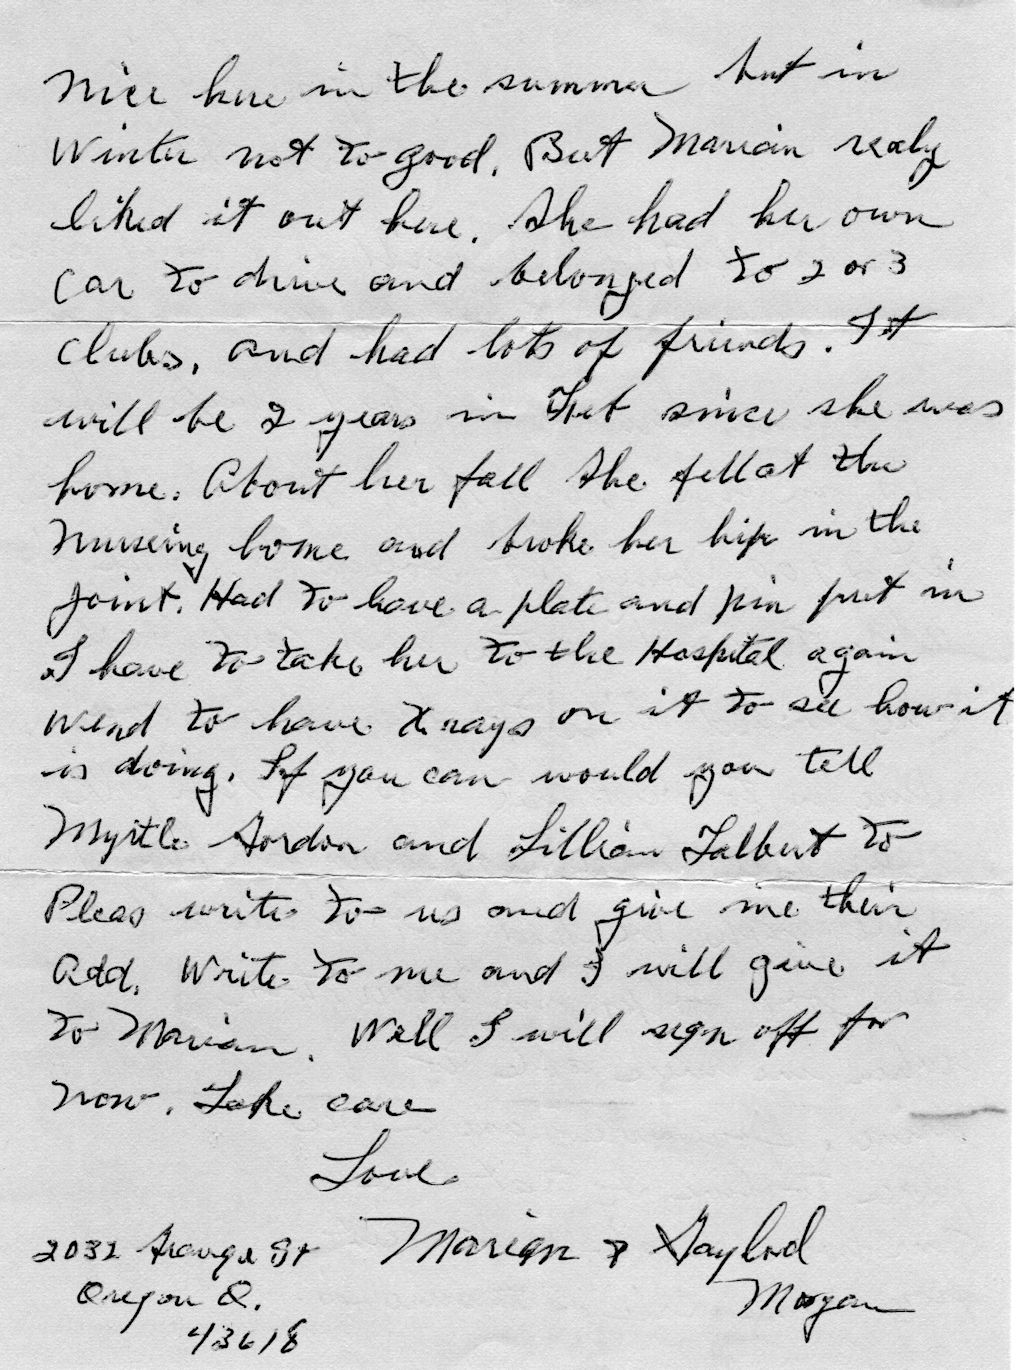 Nice here in the summer but in
Winter not to good. But Marian realy
liked it out here. She had her own
Car to drive and belonged to 2 or 3
Clubs, and had lots of friends. It
will be 2 years in Feb since she was
home. About her fall She fell at the
Nurseing home and broke her hip in the
joint. Had to have a plate and pin put in
I have to take her to the Hospital again
Wend to have X rays on it to see how it
is doing. If you can would you tell
Myrtle Gordon and Lillian Talbert to
Pleas write to us and give me their
Add. Write to me and I will give it
to Marian. Well I will sign off for
now. Take care
Love
Marian & Gaylord
Morgan
2032 Grange St
Oregon O.
43618